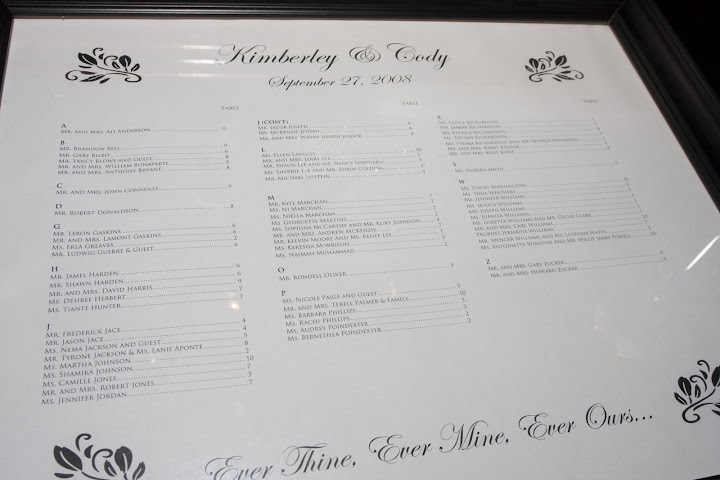 Kimberley & Cody
September 27, 2008
TABLE
A
MR. AND MRS. ALI ANDERSON
B
MR. BRANDON BELL
MR. GARY BILBO
MR. YANCY BLOWE AND GUEST
MR. AND MRS. WILLIAM BONAPARTE
MR. AND MRS. ANTHONY BRYANT
C
MR. AND MRS. JOHN CONNOLLY
D
MR. ROBERT DONALDSON
G
MR. LERON GASKINS
MR. AND MRS. LAMONT GASKINS
MS. ERLA GREAVES
MR. LUDWIG GUERRE & GUEST
H
MR. JAMEL HARDEN
MR. SHAWN HARDEN
MR. AND MRS. DAVID HARRIS
MS. DESIREE HERBERT
MS. TIANTE HUNTER
J
MR. FREDERICK JACE 4
MR. JASON JACE 4
MS. NEMA JACKSON AND GUEST 5
MR. TYRONE JACKSON & MS. LANIE APONTE 8
MS. MARTHA JOHNSON 2
MS. SHAMIKA JOHNSON 10
MS. CAMILLE JONES 7
MR. AND MRS. ROBERT JONES 3
MS. JENNIFER JORDAN 7
TABLE
J (CON'T)
MR. JACOB JOSEPH
MR. MCKENZIE JOSEPH
MR. AND MRS. WAYNE JOSEPH JUNIOR
L
MS. ELLEN LANGLEY
MR. AND MRS. JERRY LEE
MR. SHAUN LEE AND MS. NANCY SHEPPARD
MS. SHERRIE LEE AND MR. LORIN COLDING
MR. MICHAEL LIPSTEIN
M
MR. KYLE MARCHAN
MS. NJ MARCHAN
MS. NIELLA MARCHAN
MS. GEORGETTE MARTINS
MS. SOPHINA MCCARTHY AND MR. KURT JOHNSON
MR. AND MRS. ANDREW MCKENZIE
MR. KELVIN MOORE AND MS. RENEE LEE
MS. KERESHA MORRISON
MS. NAIMAH MUHAMMAD
O
MR. RONDELL OLIVER
P
MS. NICOLE PAIGE AND GUEST
MR. AND MRS. TERELL PALMER & FAMILY
MS. BARBARA PHILLIPS
MS. RACHI PHILLIPS
MS. AUDREY POINDEXTER
MS. BERNETHEA POINDEXTER
TABLE
R
RICHARDSON
MR. JABBAR RICHARDSON
RICHARDSON
RICHARDSON
MR. AND MRS. KENT ROWE
S
MS. SHERIKA SMITH
W
MS. STACEY WASHINGTON
WEATHERS
MS. JENNIFER WILLIAMS
MS. JESSICA WILLIAMS
MR. JOSEPH WILLIAMS
MS. JUANITA WILLIAMS
MS. LORETTA WILLIAMS AND MR. OSCAR CLARK
MR. AND MRS. CARL WILLIAMS
PROPHET JERMAINE WILLIAMS
MR. SPENCER WILLIAMS AND MS. LATRINA WATTS
MS. ANTOINETTE WINSTON AND MR. WILLIE JAMES POWELL
Z
MR. AND MRS. GARY ZUCKER
MR. AND MRS. HOWARD ZUCKER
Ever Thine, Ever Mine, Ever Ours...